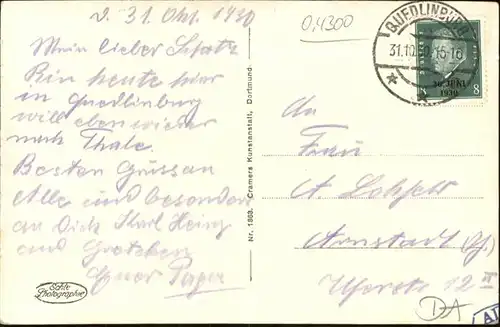 d. 31 Okt. 1930
Mein lieber Schatz
Bin heute hier
in Quedlinburg
will eben wieder
nach Thale.
Besten Gruss an
Alle und besonders
an Dich Karl Heinz
und Gretchen
Euer Papa
Echte
Photographie
Nr. 1868. Cramers Kunstanstalt, Dortmund
0,4300
QUEDLINBURG
31.10.30.15-16
30. JUNI
1930
8 8
An
Frau
A.
Arnstadt (Th.)
Uferstr. 12 III
DA